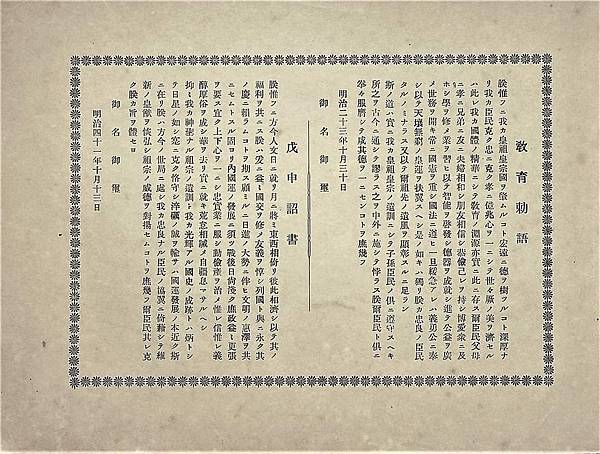 教育勅語
朕惟フニ我カ皇祖皇宗國ヲ肇ムルコト宏遠ニ德ヲ樹ツルコト深厚ナ
リ我カ臣民克ク忠ニ克ク孝ニ億兆心ヲ一ニシテ世々厥ノ美ヲ濟セル
ハ此レ我カ國體ノ精華ニシテ敎育ノ淵源亦實ニ此ニ存ス爾臣民父母
ニ孝ニ兄弟ニ友ニ夫婦相和シ朋友相信シ恭儉己レヲ持シ博愛衆ニ及
ホシ學ヲ修メ業ヲ習ヒ以テ智能ヲ啓發シ德器ヲ成就シ進テ公益ヲ廣
メ世務ヲ開キ常ニ國憲ヲ重シ國法ニ遵ヒ一旦緩急アレハ義勇公ニ奉
シ以テ天壤無窮ノ皇運ヲ扶翼スヘシ是ノ如キハ獨リ朕カ忠良ノ臣民
タルノミナラス又以テ爾祖先ノ遺風ヲ顯彰スルニ足ラン
斯ノ道ハ實ニ我カ皇祖皇宗ノ遺訓ニシテ子孫臣民ノ俱ニ遵守スヘキ
所之ヲ古今ニ通シテ謬ラス之ヲ中外ニ施シテ悖ラス朕爾臣民ト俱ニ
拳々服膺シテ咸其德ヲ一ニセンコトヲ庶幾フ
明治二十三年十月三十日
御名御璽
戊申詔書
朕惟フニ方今人文日ニ就リ月ニ將ミ東西相倚リ彼此相濟シ以テ其ノ
福利ヲ共ニス朕ハ爰ニ益々國交ヲ修メ友義ヲ惇シ列國ト與ニ永ク其
ノ慶ニ賴ラムコトヲ期ス顧ミルニ日進ノ大勢ニ伴ヒ文明ノ惠澤ヲ共
ニセムトスル固ヨリ內國運ノ發展ニ須ツ戰後日尙淺ク庶政益々更張
ヲ要ス宜ク上下心ヲ一ニシ忠實業ニ服シ勤儉產ヲ治メ惟レ信惟レ義
醇厚俗ヲ成シ華ヲ去リ實ニ就キ荒怠相誡メ自彊息マサルヘシ
抑々我カ神聖ナル祖宗ノ遺訓ト我カ光輝アル國史ノ成跡トハ炳トシ
テ日星ノ如シ寔ニ克ク恪守シ淬礪ノ誠ヲ輸サハ國運發展ノ本近ク斯
ニ在リ朕ハ方今ノ世局ニ處シ我カ忠良ナル臣民ノ協翼ニ倚藉シテ維
新ノ皇猷ヲ恢弘シ祖宗ノ威德ヲ對揚セムコトヲ庶幾フ爾臣民其レ克
ク朕カ旨ヲ體セヨ
御名御璽
明治四十一年十月十三日